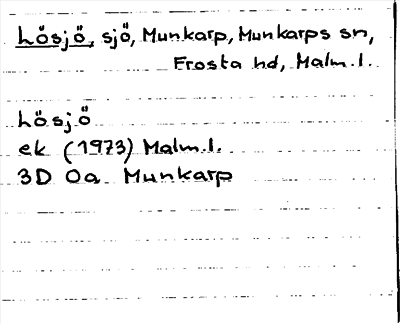 Lösjö, sjö, Munkarp, Munkarps sn,
Frosta hd, Malm.l.
Lösjö
ek (1973) Malm.l.
3D Oa Munkarp